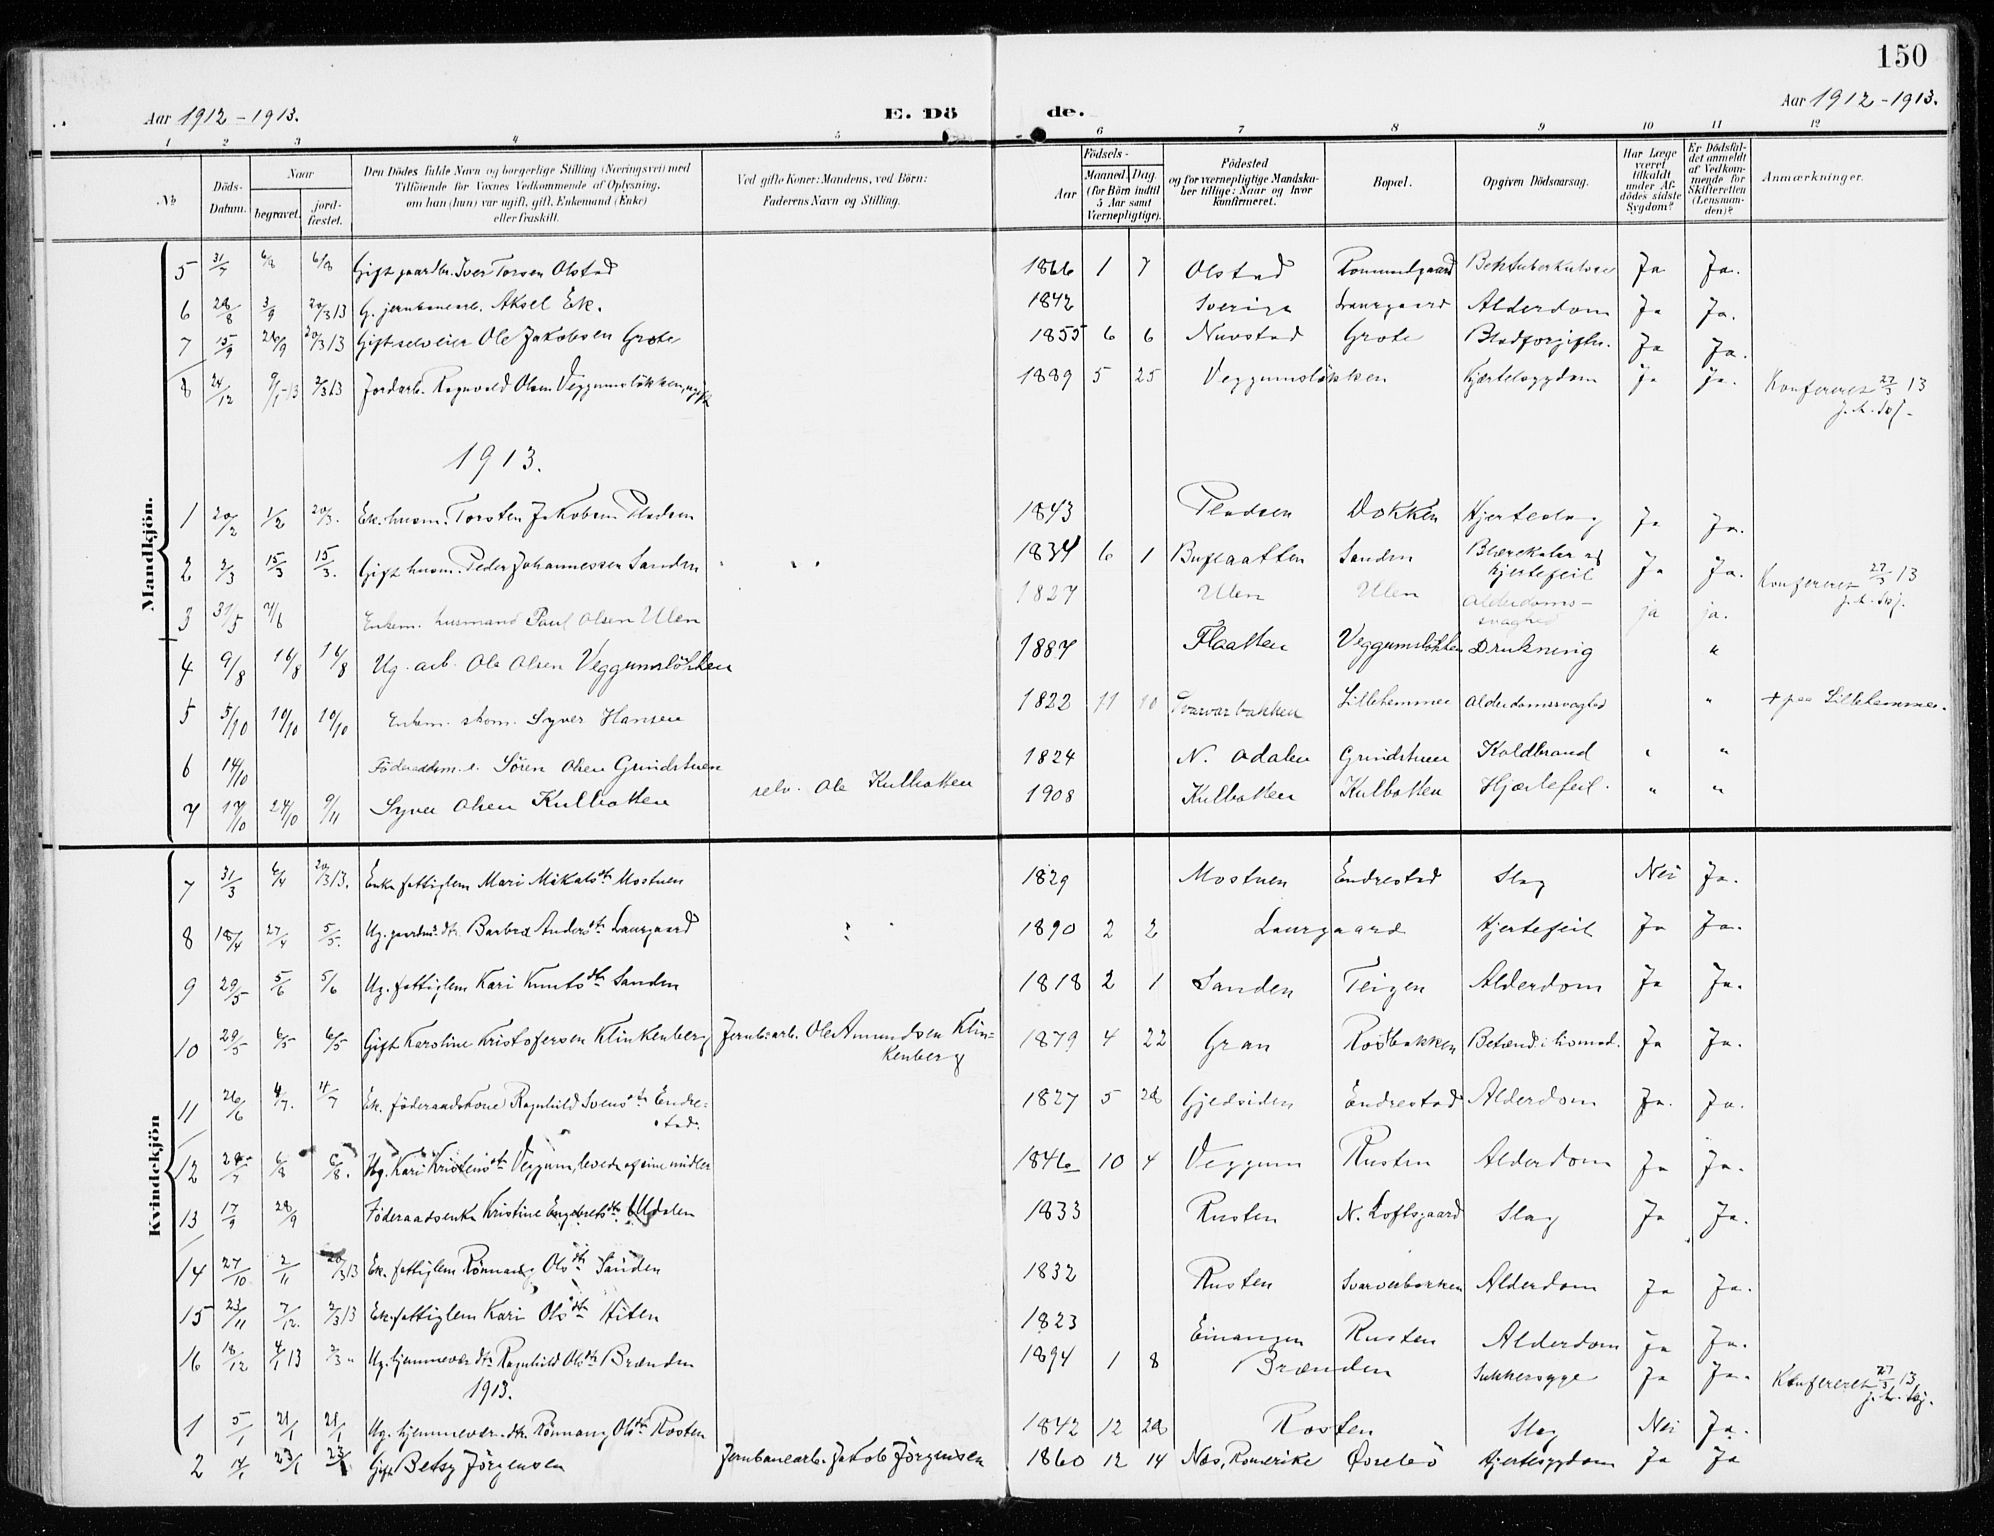 150
Aar 1912-1913.
E. Dö
de.
Aar 1912-1913.
1 2 3 4 5 6 7 8 9 10 11 12
No
Döds-Datum.
Naar
begravet.
jord-fæstet.
Den Dödes fulde Navn og borgerlige Stilling (Næringsvei) med
Tilföiende for Voxnes Vedkommende af Oplysning,
om han (hun) var ugift, gift, Enkemand (Enke)
eller fraskilt.
Ved gifte Koner: Mandens, ved Börn:
Faderens Navn og Stilling.
Födsels-
Aar
Maaned. Dag.
(for Börn indtil
5 Aar samt
Værnepligtige).
Födested
og for værnepligtige Mandska-
ber tillige: Naar og hvor
konfirmeret.
Bopæl.
Opgiven Dödsaarsag.
Har Læge
været
tilkaldt
under Af-
dödes sidste
Sygdom?
Er Dödsfal-
det anmeldt
af Vedkom-
mende for
Skifteretten
(Lensman-
den)?
Anmærkninger.
Mandkjön.
5 31/7 6/8 6/8 Gift gaardbr. Iver Torsen Olstad 1866 1 7 Olstad Rommelgaard Ja Ja.
6 28/8 3/9 20/3 13 G. jernbanearb. Aksel Ek. 1842 Sverige Laurgaard Alderdom Ja Ja.
7 15/9 20/3 13 Gift selveier Ole Jakobsen Grote 1855 6 6 Grote Blodforgiftn. Ja Ja.
8 24/12 9/1-13 2/3 13 Jordarb. Ragnvald Olsen Veggumsløkken, ugift 1889 5 25 Veggumsløkken Kjertelsygdom Ja Ja. Konfereret 27/3 13
1913.
1 20/2 1/2 20/3. Ek. husm. Torsten Jakobsen Pladsen 1843 Pladsen Dokken Hjerteslag Ja Ja.
2 2/3 15/3 15/3. Gift husm. Peder Johannessen Sanden 1834 6 1 Sanden Blærekatar og
hjertefeil Ja Ja. Konfereret 27/3 13
3 31/5 7/6 Enkem. husmand Paul Olsen Ulen 1827 Ulen Ulen Alderdoms-
svaghed ja ja.
4 9/8 16/8 16/8 Ug. arb. Ole Olsen Veggumsløkken 1887 Flaatten Veggumsløkken Drukning "
5 5/10 10/10 10/10 Enkem. skom. Syver Hansen 1822 11 10 Svarvarbakken Lillehammer Alderdomssvaghed " + paa Lillehammer.
6 14/10 Søren Olsen Grindstuen 1824 N. Odalen Grindstuen Koldbrand " "
7 17/10 24/10 9/11 Syver Olsen Kulbotten selv. Ole Kulbotten 1908 Kulbotten Kulbotten Hjertefeil. " "
Kvindekjön
7 31/3 6/4 20/3 13. Enke fattiglem Mari Mikalsdtr Mostuen 1829 Mostuen Endrestad Slag Nei Ja.
8 18/4 27/4 5/5. Ug. gaardm. dtr. Barbra Andersdtr Laurgaard 1890 2 2 Laurgaard Hjertefeil Ja Ja.
9 29/5 5/6 5/6 Ug. fattiglem Kari Knutsdtr Sanden 1818 2 1 Sanden Teigen Alderdom Ja Ja.
10 29/5 6/5 6/5 Gift Karoline Kristofersen Klinkenberg Jernb.arb. Ole Amundsen Klin-
kenberg 1879 4 22 Gran Rosbakken Ja Ja.
11 26/6 4/7. 4/7 Ek. föderaadskone Ragnhild Svensdtr Endre-
stad. 1827 5 28 Gjedsiden Endrestad Alderdom Ja. Ja.
12 6/8 6/8. Ug. Kari Kristensdtr Veggum, levede af sine midler 1846 10 4 Veggum Rusten Alderdom Ja Ja.
13 17/9 28/9 Föderaadsenke Kristine Engebretsdtr Uldalen 1833 Rusten N. Loftsgaard Slag Ja Ja.
14 27/10 2/11 20/3 13 Ek. fattiglem Rönnaug Olsdtr Sanden 1832 Rusten Svarverbakken Alderdom Ja Ja.
15 23/11 7/12. 2/3 13 Ek. fattiglem Kari Olsdtr Stiten 1823 Einangen Rusten Alderdom Ja Ja.
16 18/12 4/1 13 2/3 " Ug. hjemmevær. dtr Ragnhild Olsdtr Brænden 1894 1 8 Brænden Sukkersyge Ja Ja. Konfereret 27/3 13
1913.
1 5/1 21/1 21/1 Ug. hjemmevær. dtr. Rønnaug Olsdtr Rosten 1842 12 28 Rosten Slag Nei Ja.
2 14/1 23/1 23/1 Gift Betsy Jörgensen Jernbanearb. Jakob Jörgensen 1860 12 14 Nes, Romerike Øvrebö Hjertesygdom Ja Ja